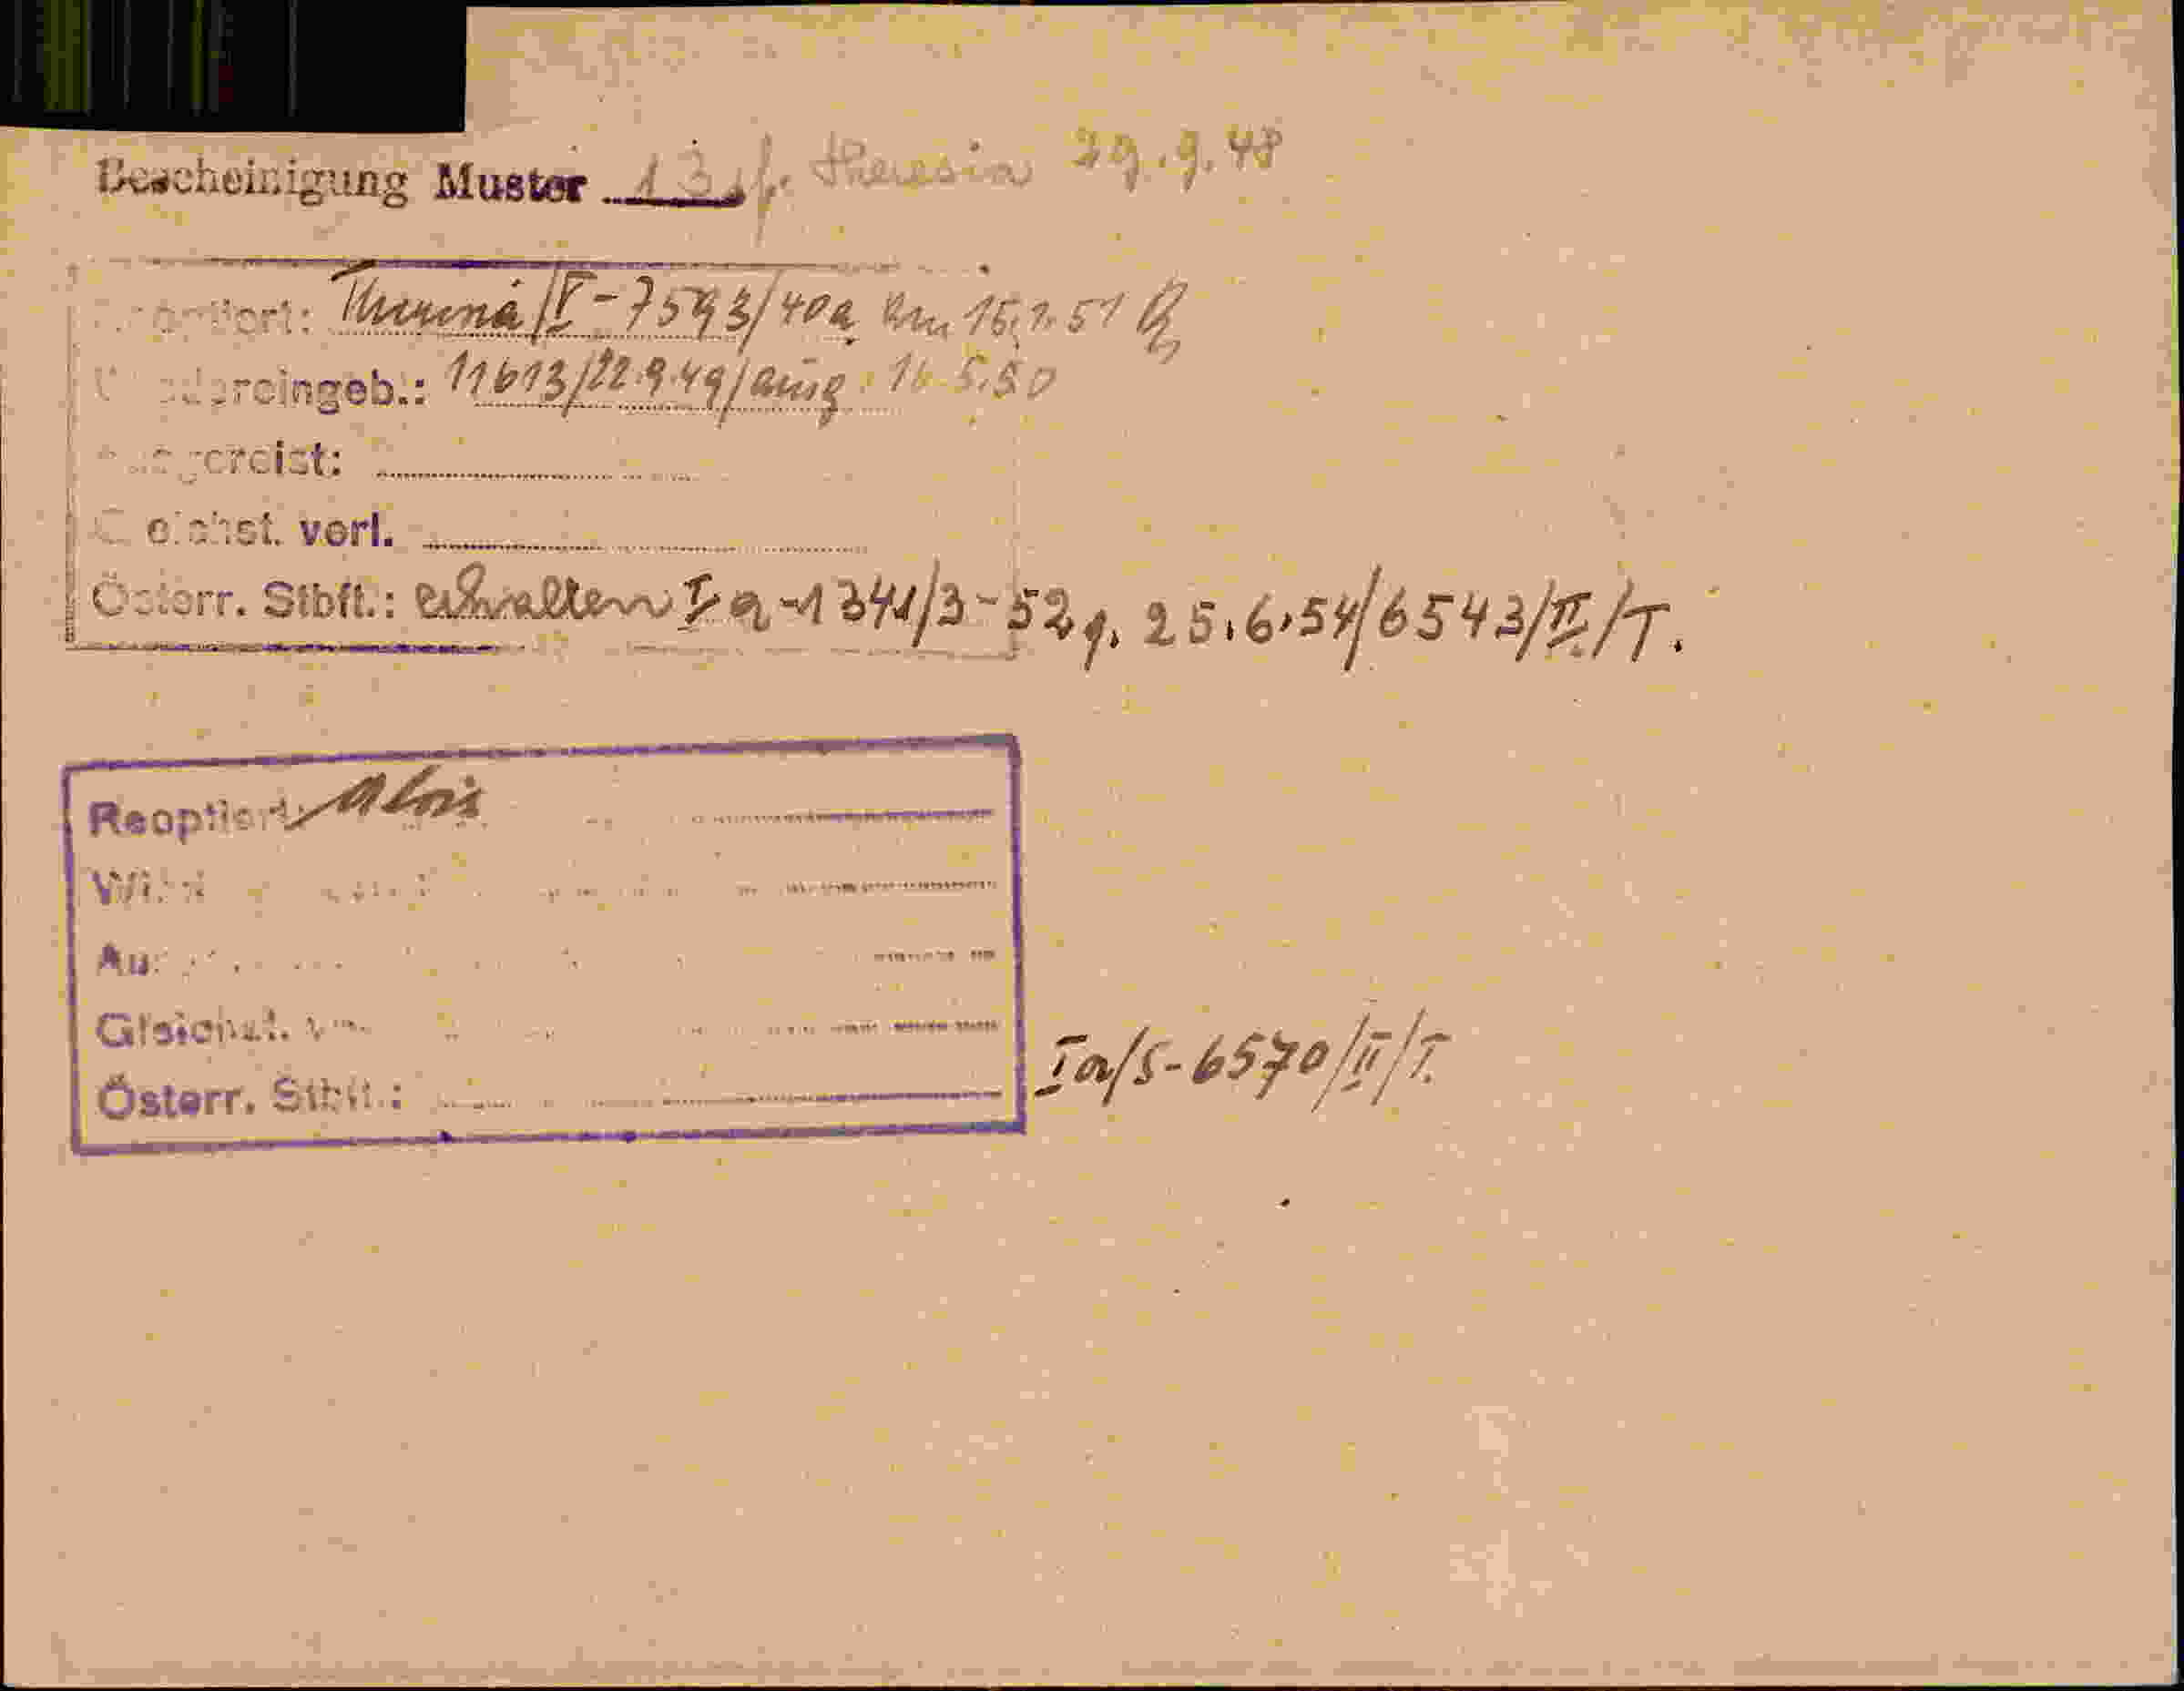 Bescheinigung Muster 13 f. Theresia 29.9.48
/V-7593/40a am 15.1.51
Wiedereingeb.: 11613/22.9.49/ausg. 16.5.50
Ausgereist:
Gleichst. verl.
Österr. Stbft.: erhalten Ia-1341/3-52 g. 25.6.54/6543/II/T.
Reoptiert: Alois
Gleichst.
Österr. Stbft.: Ia/S-6570/II/T.